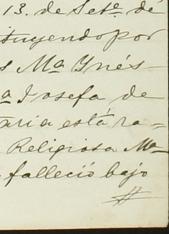 13. de Sete. dé
tituyendo por
s Ma. Ynés
a Josefa de
aria está ra-
Religiosa Ma-
falleció bajo